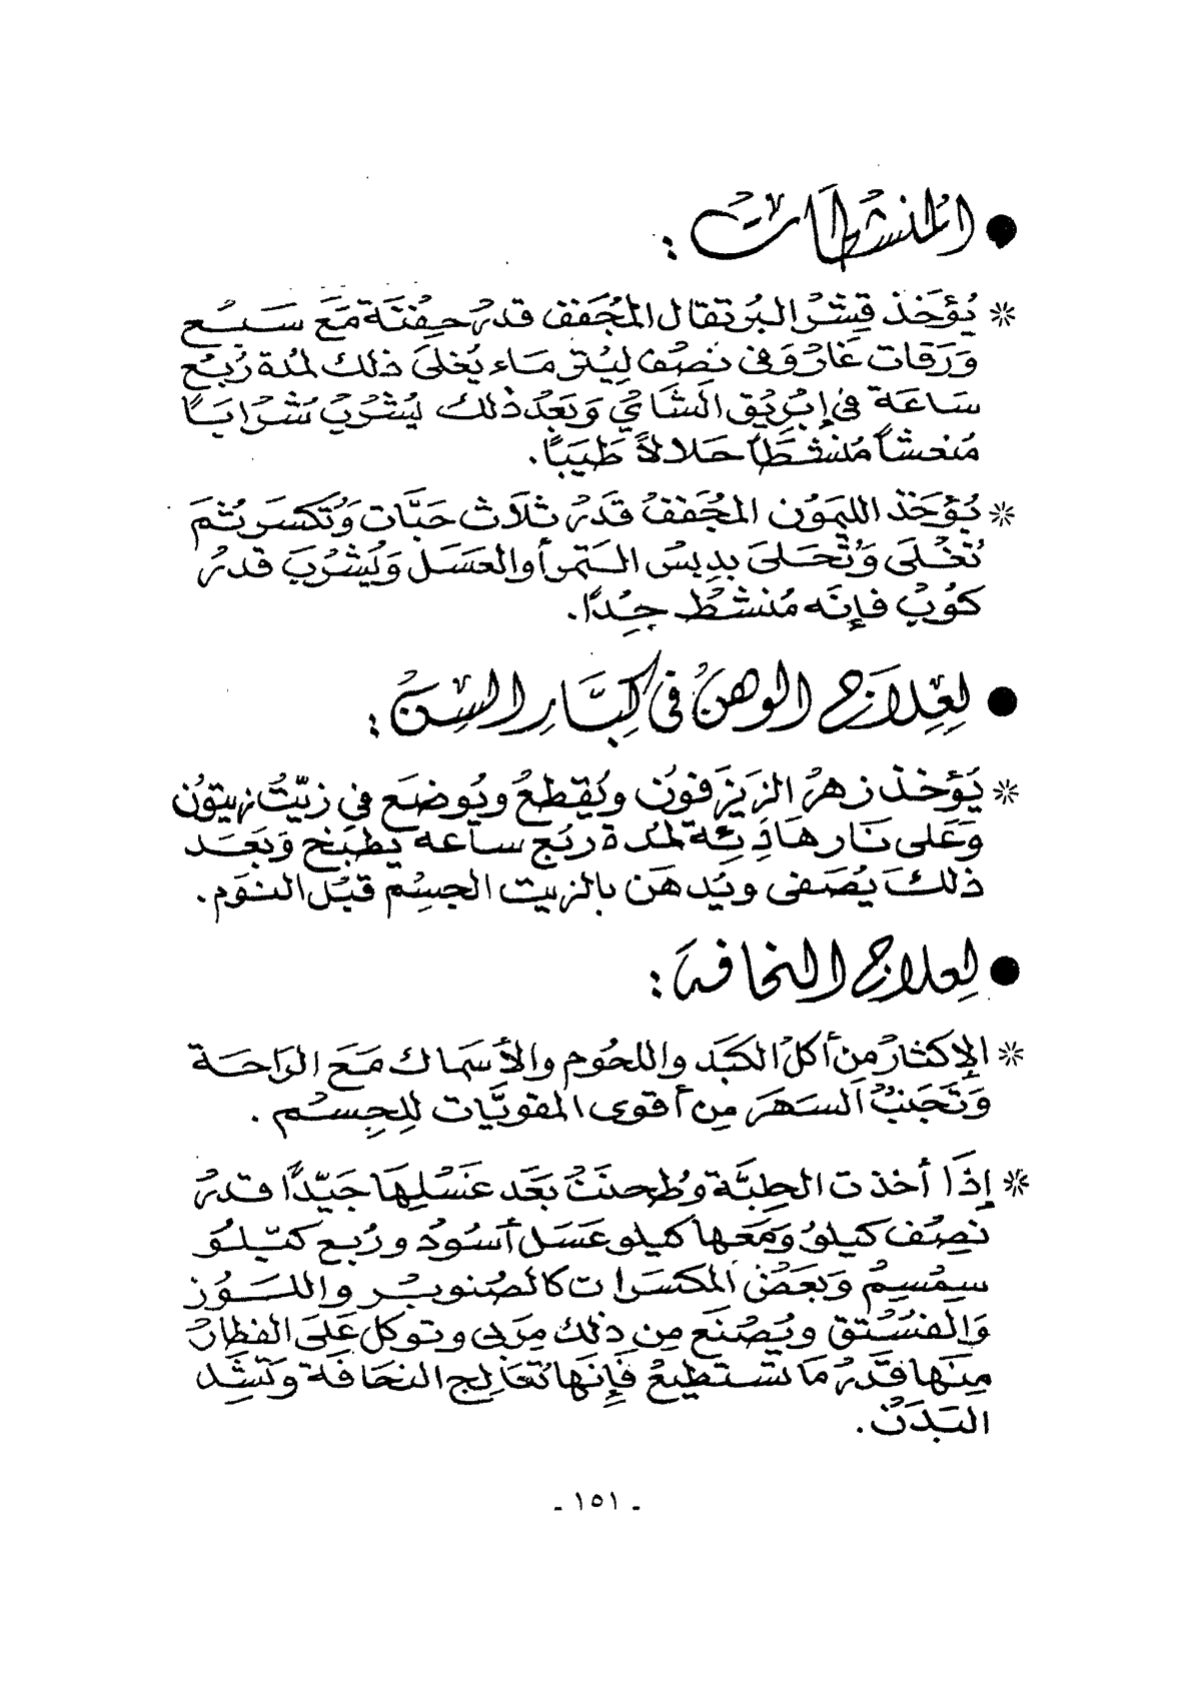 ● المنشطات :
* يُؤخَذ قِشْرُ البُرتقال المُجَفف قدرُ حِفْنَة مَعَ سَبْع
وَرَقات غَارْ وَفي نصْف ليْتر مَاء يُغلىَ ذلك لمُدة رُبْع
سَاعَة في إبْريْق الشَاي وَبَعْد ذْلك يُشْرَبْ شَرابَاً
مُنعشاً مُنشطَاً حَلالاً طَيبَاً .
* يُؤخَذ الليَموُن المُجَففْ قَدرُ ثلاَث حَبَّات وَتُكسَر ثم
تُغْلَى وَتُحَلىَ بدِبسْ التمر أو العَسَل وَيُشْرَبَ قدرُ
كوُبْ فإنَه مُنشْط جِداً .
● لِعِلاَج الوهنْ في كِبَّارِ السِنْ :
* يُؤخذ زهرُ الزَيزَفوُن ويُقطعُ ويُوضَع في زيّتْ زيتوُن
وَعَلى نَار هَادِئِة لمُدة رَبَع ساَعة يطبَخ وَبَعَد
ذلكَ يُصَفى ويُدهَن بالزيت الجسْم قبْل النوَم .
● لِعلاج النحافة :
* الإكثارُ مِن أكلْ الكبَد واللحُوم والأسَماك مَعَ الرَاحَة
وَتَجَنبْ السَهَرَ مِن أقوى المقويَّات للِجِسْم .
* إذَا أخذت الحلِبَّة وطُحنَتْ بَعَد غَسْلِهَا جَيّدًا قدرُ
نصِفْ كيلوُ وَمَعَها كيلو عَسَل أسَوُد ورُبع كيّلوُ
سِمْسِمْ وَبَعَضْ المكسَرات كالصُنوبر واللَوْز
وَالفسْتق ويُصْنَع مِن ذِلك مِربى وتوكل عَلىَ الفطارْ
مِنْها قَدَرُ مَا تسْتطِيعْ فَإنَها تُعَالِج النحَافَة وَتشِد
البَدَنْ .
- ١٥١ -